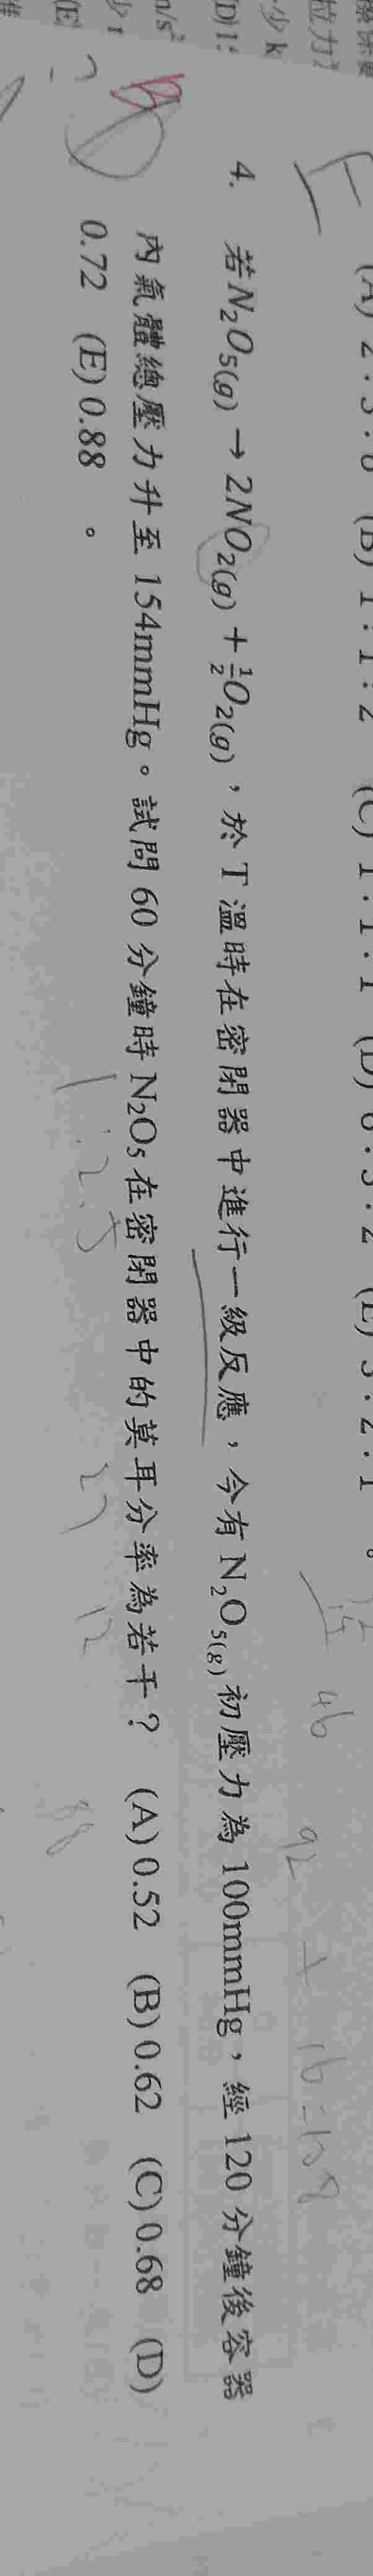 (A) 2:3:6 (B) 1:1:2 (C) 1:1:1 (D) 6:3:2 (E) 3:2:1 。
46 92 + 16 = 108
4. 若N₂O₅(g) → 2NO₂(g) + ½O₂(g)，於 T 溫時在密閉器中進行一級反應，今有 N₂O₅(g) 初壓力為 100mmHg，經 120 分鐘後容器
內氣體總壓力升至 154mmHg。試問 60 分鐘時 N₂O₅ 在密閉器中的莫耳分率為若干？ (A) 0.52 (B) 0.62 (C) 0.68 (D)
0.72 (E) 0.88 。
1 : 2.5